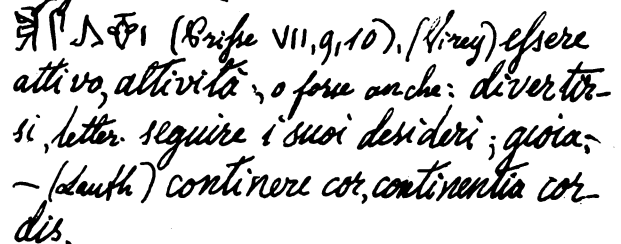 (Prisse VII, 9, 10), (Virey) essere
attivo, attività; o forse anche: divertir-
si, letter. seguire i suoi desideri; gioia;
– (Lauth) continere cor, continentia cor-
dis.